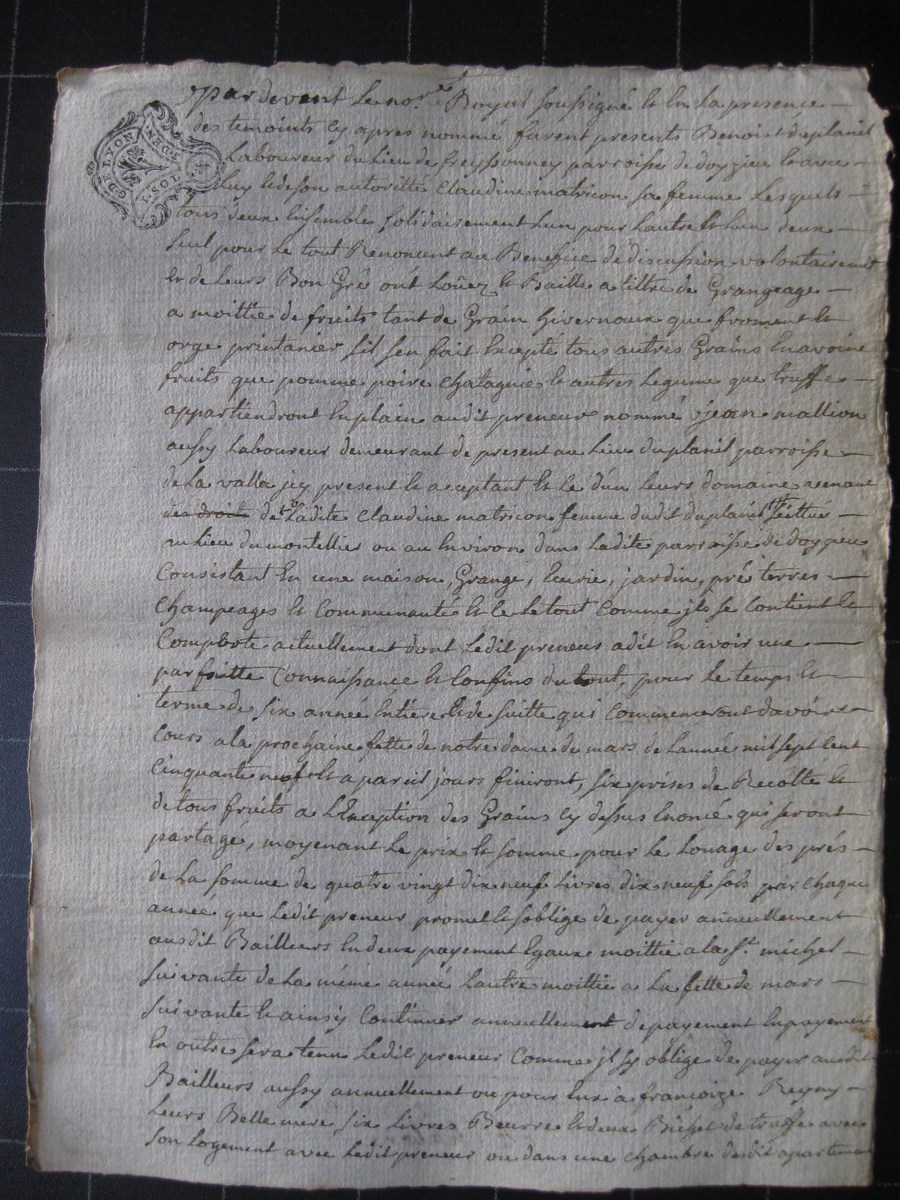 GEN. DE LYON
1 SOL
pardevant le no.re Royal soussigné & en la presence
des temoints cy apres nommé furent presents Benoist duplanil
Laboureur du Lieu de freyssonney parroisse de doyzieu & avec
luy & de son autoritté Claudine matricon sa femme Lesquels
tous deux Ensembles solidairement lun pour lautre & lun deux
seul pour le tout Renoncant au Beneffice de discussion volontairement
& de leurs Bon Gré ont Loüez & Baille a tiltre de Grangeage
a moittie de fruits tant de Grain hivernoux que froment &
orge printanier sil sen fait Excepté tous autres Grains En avoine
fruits que pomme poire Chatagnie & autres Legume que truffe
appartiendront En plain audit preneur nommé jean mallion
aussy Laboureur demeurant de present au Lieu du planil parroisse
de la valla jcy present & aceptant & le d'un leurs domaine asenant
des droits de Ladite Claudine matricon femme dudit duplanil scittué
au Lieu du montellier ou au Environ dans Ladite parroisse de doyzieu
Consistant En une maison, Grange, Ecurie, jardin, prés terres
Champeages & Communauté & le tout Comme jls se Contient &
Comporte actuellement dont Ledit preneur a dit En avoir une
parfaitte Connaissance & Confins du tout, pour le temps &
terme de six année Entiere & de suitte qui Commenceront davoir
Cours a la prochaine fette de notre dame de mars de Lannée mil sept Cent
Cinquante neuf & a pareil jours finiront, six prises de Recolté &
de tous fruits a LException des Grains Cy dessus Enoncé qui seront
partagé, moyenant Le prix & somme pour le Louage des prés
de La somme de quatre vingt dix neuf Livres dix neuf sols par chaque
année que Ledit preneur promet & soblige de payer annuellement
ausdit Bailleurs En deux payement Egaux moittie a la St. michel
suivante de La méme année Lautre moittie a La fette de mars
suivante & ainsy Continuer annuellement de payement En payement
En outre sera tenu Ledit preneur Comme jl sy oblige de payer ausdit
Bailleurs aussy annuellement ou pour Eux a francoize Reyny
Leurs Belle mere six Livres Beurre & deux Bichet de truffe avec
son Logement avec Ledit preneur ou dans une chambre desdit apartement